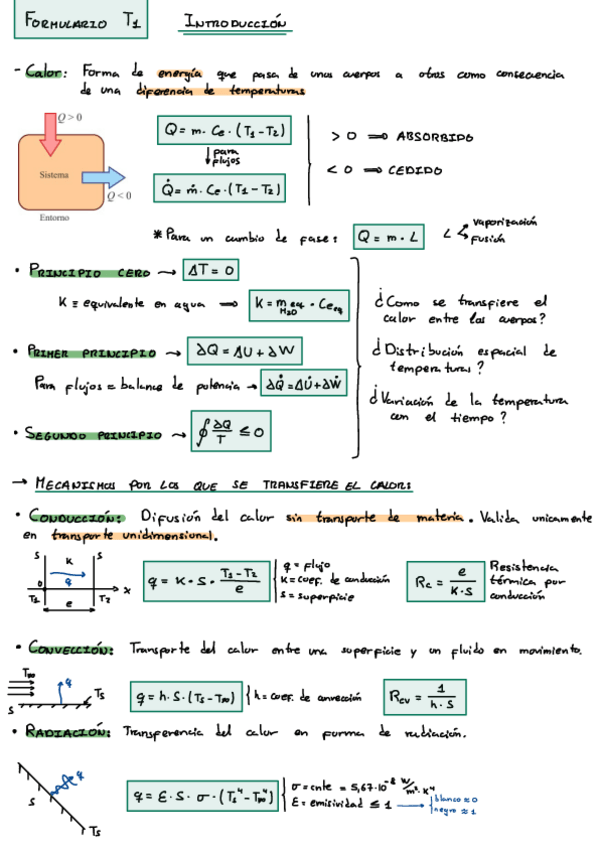 FORMULARIO T1 INTRODUCCIÓN
- Calor: Forma de energía que pasa de unos cuerpos a otros como consecuencia
de una diferencia de temperaturas
Q > 0
Sistema
Q < 0
Entorno
Q = m · Ce · (T1 - T2)
para
flujos
Q̇ = ṁ · Ce · (T1 - T2)
> 0 ⟹ ABSORBIDO
< 0 ⟹ CEDIDO
* Para un cambio de fase: Q = m · L L vaporización
fusión
• PRINCIPIO CERO → ΔT = 0
K ≡ equivalente en agua ⟹ K = m eq H2O · Ce eq
• PRIMER PRINCIPIO → ∂Q = ΔU + ∂W
Para flujos = balance de potencia → ∂Q̇ = ΔU̇ + ∂Ẇ
• SEGUNDO PRINCIPIO → ∮ ∂Q/T ≤ 0
¿Como se transfiere el
calor entre los cuerpos?
¿Distribución espacial de
temperaturas?
¿Variación de la temperatura
con el tiempo?
→ MECANISMOS POR LOS QUE SE TRANSFIERE EL CALOR:
• CONDUCCIÓN: Difusión del calor sin transporte de materia. Valida unicamente
en transporte unidimensional.
S K S
q
0 x
T1 e T2
q = K · S · (T1 - T2)/e
q = flujo
K = coef. de conducción
S = superficie
Rc = e/(K · S)
Resistencia
térmica por
conducción
• CONVECCIÓN: Transporte del calor entre una superficie y un fluido en movimiento.
T∞ q
S Ts
q = h · S · (Ts - T∞) h = coef. de convección
Rcv = 1/(h · S)
• RADIACIÓN: Transferencia del calor en forma de radiación.
q
S
Ts
q = ε · S · σ · (Ts⁴ - T∞⁴)
σ = cnte = 5,67·10⁻⁸ W/m²·K⁴
ε = emisividad ≤ 1 → blanco ≈ 0
negro ≈ 1